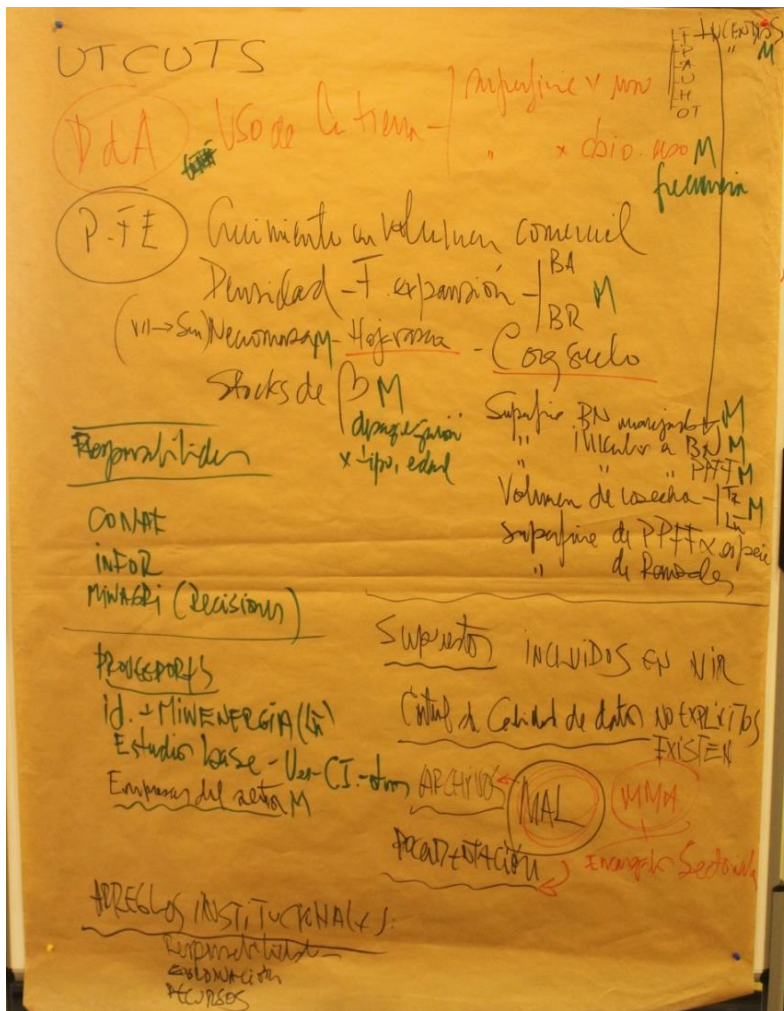 UTCUTS
F INCENDIOS
P " M
A
U
H
OT
DdA Uso de la tierra - superficie x uso
" x cbio. uso M
frecuencia
P. FE Crecimiento en volumen comercial
Densidad - F. expansión - BA
BR M
Necromasa M - Hojarasca - Corg suelo
Stocks de M
x tipo, edad
Superficie BN manejado M
" " a BN M
" " " PPFF M
Volumen de cosecha - M
Superficie de PPFF x especie
" de
Responsabilidades
CONAF
INFOR
MINAGRI (Decisiones)
PROVEEDORES
id. + MINENERGÍA
Estudio base - Ver CI. - otros
Empresas del sector M
Supuestos INCLUIDOS EN NIR
Control de Calidad de datos NO EXPLICITOS
EXISTEN
ARCHIVOS MAL MMA
DOCUMENTACIÓN
ARREGLOS INSTITUCIONALES:
Responsabilidades
RECURSOS